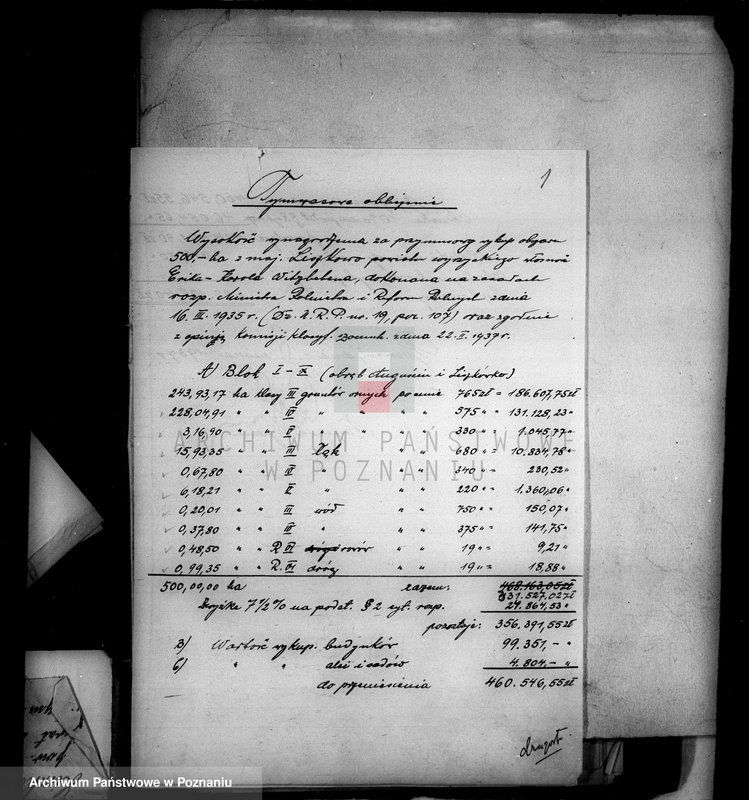 1
Tymczasowe obliczenie
Wysokość wynagrodzenia za przymusowy wykup obszaru
500,- ha z maj. Liszkowo powiatu wyrzyskiego własność
Erika-Karola Witzlebena, dokonana na zasadach
rozp. Ministra Rolnictwa i Reform Rolnych z dnia
16. III. 1935 r. (Dz. U. R. P. no. 19, poz. 107) oraz zgodnie
z opinją Komisji klasyf. szacunk. z dnia 22. II. 1937 r.
A) Blok I - X (obręb Augustin i Liszkówko)
243,93,17 ha klasy III gruntów ornych po cenie 765 zł = 186.607,75 zł
228,04,91 " " IV " " " " 575 " = 131.128,23 "
3,16,90 " " V " " " " 330 " = 1.045,77 "
15,93,35 " " III łąk " " 680 " = 10.834,78 "
0,67,80 " " IV " " " 340 " = 230,52 "
6,18,21 " " V " " " 220 " = 1.360,06 "
0,20,01 " " III wód " " 750 " = 150,07 "
0,37,80 " " IV " " " 375 " = 141,75 "
0,48,50 " " R VI rowów " " 19 " = 9,21 "
0,99,35 " " R. VI dróg " " 19 " = 18,88 "
500,00,00 ha razem: 468.163,05 zł
331.527,02 zł
Zwyżka 7 1/2 % na podst. § 2 cyt. rozp. 24.864,53 "
pozostaje: 356.391,55 zł
Wartość wykup. budynków 99.351,- "
" " alei i sadów 4.804,- "
do przeniesienia 460.546,55 zł
ARCHIWUM PAŃSTWOWE
W POZNANIU
Archiwum Państwowe w Poznaniu